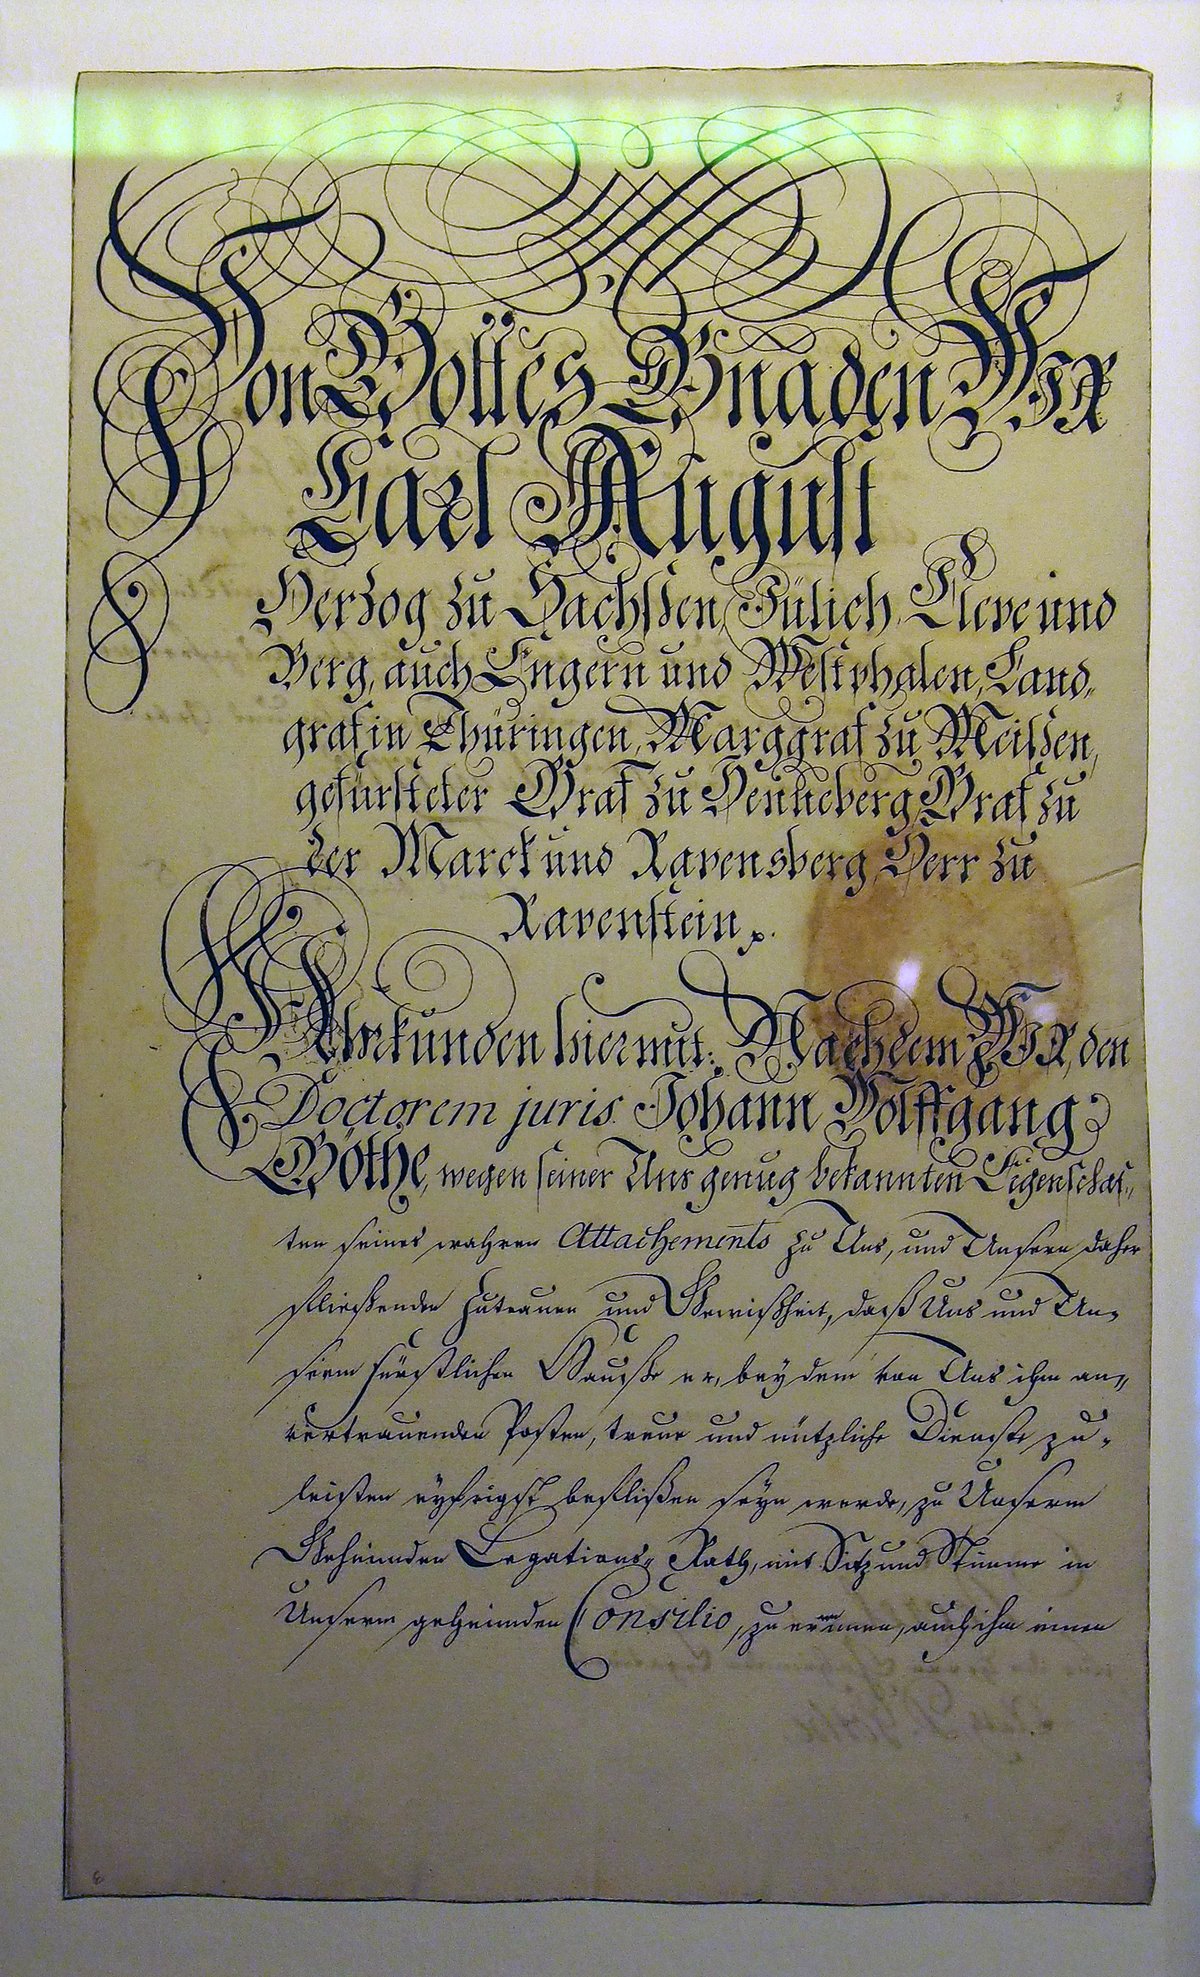 Von Gottes Gnaden Wir
Carl August
Herzog zu Sachssen, Jülich, Cleve und
Berg, auch Engern und Westphalen, Land-
graf in Thüringen, Marggraf zu Meissen,
gefürsteter Graf zu Henneberg, Graf zu
der Marck und Ravensberg, Herr zu
Ravenstein
Uhrkunden hiermit: Nachdem Wir, den
Doctorem juris Johann Wolffgang
Göthe, wegen seiner Uns genug bekannten Eigenschaf-
ten seines wahren Attachements zu Uns, und Unsern daher
fließenden Zutrauen und Gewißheit, daß Uns und Un-
serm Fürstlichen Hauße er, bey dem von Uns ihm an-
vertrauenden Posten, treue und nützliche Dienste zu
leisten eyfrigst beflißen seyn werde, zu Unserm
Geheimden Legations-Rath, mit Sitz und Stimme in
Unserm geheimden Consilio, zu ernennen, auch ihm einen
3
6